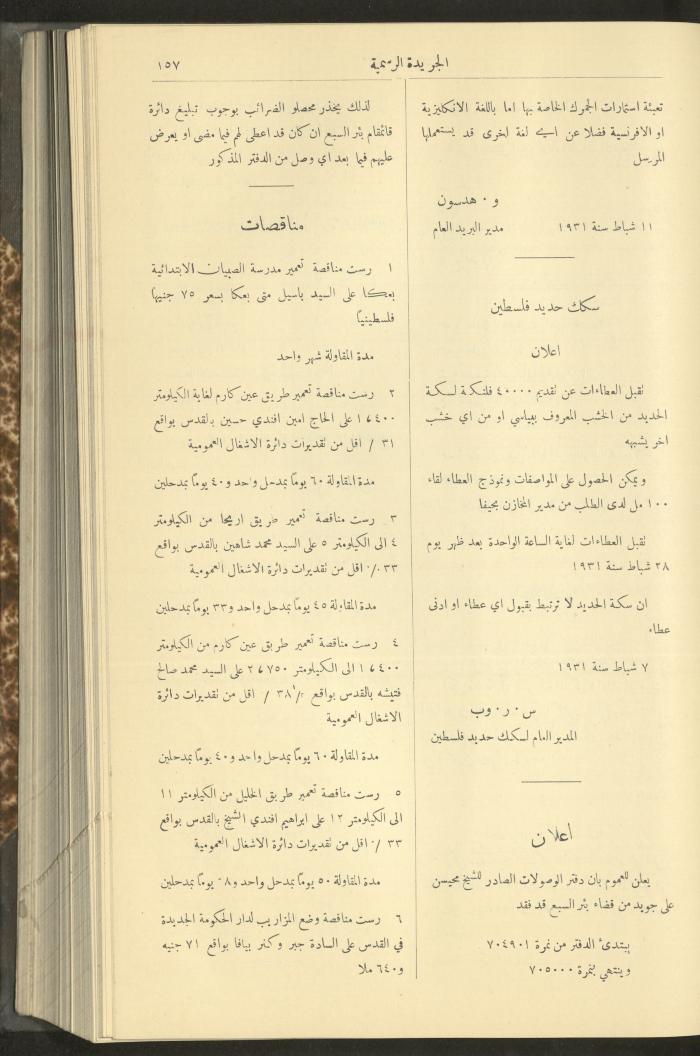 الجريدة الرسمية
١٥٧
تعبئة استمارات الجمرك الخاصة بها اما باللغة الانكليزية
او الافرنسية فضلا عن اية لغة اخرى قد يستعملها
المرسل
و٠ هدسون
١١ شباط سنة ١٩٣١ مدير البريد العام
سكك حديد فلسطين
اعلان
تقبل العطاءات عن تقديم ٤٠٠٠٠ فلنكة لسكة
الحديد من الخشب المعروف بفياسي او من اي خشب
اخر يشبهه
ويمكن الحصول على المواصفات ونموذج العطاء لقاء
١٠٠ مل لدى الطلب من مدير المخازن بحيفا
تقبل العطاءات لغاية الساعة الواحدة بعد ظهر يوم
٢٨ شباط سنة ١٩٣١
ان سكة الحديد لا ترتبط بقبول اي عطاء او ادنى
عطاء
٧ شباط سنة ١٩٣١
س٠ ر٠ وب
المدير العام لسكك حديد فلسطين
اعلان
يعلن للعموم بان دفتر الوصولات الصادر للشيخ محيسن
على جويد من قضاء بئر السبع قد فقد
يبتدئ الدفتر من نمرة ٧٠٤٩٠١
وينتهي بنمرة ٧٠٥٠٠٠
لذلك يحذر محصلو الضرائب بوجوب تبليغ دائرة
قائمقام بئر السبع ان كان قد اعطى لهم فيما مضى او يعرض
عليهم فيما بعد اي وصل من الدفتر المذكور
مناقصات
١ رست مناقصة تعمير مدرسة الصبيان الابتدائية
بعكا على السيد باسيل متى بعكا بسعر ٧٥ جنيها
فلسطينيا
مدة المقاولة شهر واحد
٢ رست مناقصة تعمير طريق عين كارم لغاية الكيلومتر
١٫٤٠٠ على الحاج امين افندي حسين بالقدس بواقع
٣١ ٪ اقل من تقديرات دائرة الاشغال العمومية
مدة المقاولة ٦٠ يوماً بمدحل واحد و٤٠ يوماً بمدحلين
٣ رست مناقصة تعمير طريق اريحا من الكيلومتر
٤ الى الكيلومتر ٥ على السيد محمد شاهين بالقدس بواقع
٣٣ ٪ اقل من تقديرات دائرة الاشغال العمومية
مدة المقاولة ٤٥ يوماً بمدحل واحد و٣٣ يوماً بمدحلين
٤ رست مناقصة تعمير طريق عين كارم من الكيلومتر
١٫٤٠٠ الى الكيلومتر ٢٫٧٥٠ على السيد محمد صالح
فتيشه بالقدس بواقع ٣٨ ٪ اقل من تقديرات دائرة
الاشغال العمومية
مدة المقاولة ٦٠ يوماً بمدحل واحد و٤٠ يوماً بمدحلين
٥ رست مناقصة تعمير طريق الخليل من الكيلومتر ١١
الى الكيلومتر ١٢ على ابراهيم افندي الشيخ بالقدس بواقع
٣٣ ٪ اقل من تقديرات دائرة الاشغال العمومية
مدة المقاولة ٥٠ يوماً بمدحل واحد يوماً بمدحلين
٦ رست مناقصة وضع المزاريب لدار الحكومة الجديدة
في القدس على السادة جبر وكنر بيافا بواقع ٧١ جنيه
و٦٤٠ ملا